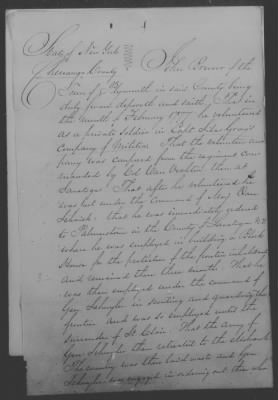 State of New York
Chenango County
John Brower of the
Town of Plymouth in said County being
duly sworn deposeth and saith, That in
the month of February 1777 he volunteered
as a private Soldier in Capt Silas Grays
Company of Militia. That the volunteer
Company was composed from the regiment com
manded by Col Van Veghten then at
Saratoga. That after he volunteered he
was put under the Command of Maj Van
Schaick. that he was immediately ordered
to Palmerston in the County of Saratoga N.Y.
when he was employed in building a Block
House for the protection of the frontier inhabitants
and remained there three months. That he
was then employed under the command of
Gen Schuyler in scouting and guarding the
frontier and was so employed until the
surrender of St Clair. That the army of
Gen Schuyler then retreated to the
The country was then laid waste and Gen
Schuyler was engaged in ordering out the whole